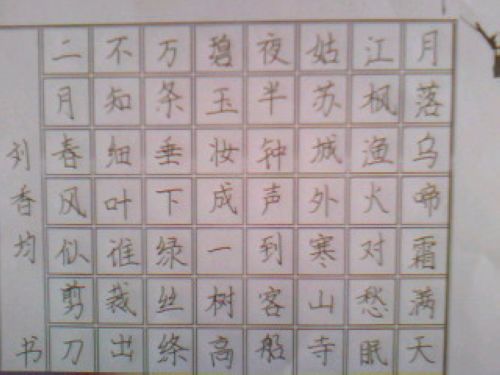 月落乌啼霜满天
江枫渔火对愁眠
姑苏城外寒山寺
夜半钟声到客船
碧玉妆成一树高
万条垂下绿丝绦
不知细叶谁裁出
二月春风似剪刀
刘香均书